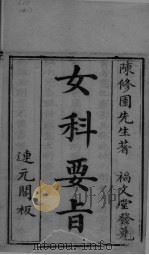 陳修園先生著
福文堂發兌
女科要旨
連元閣板